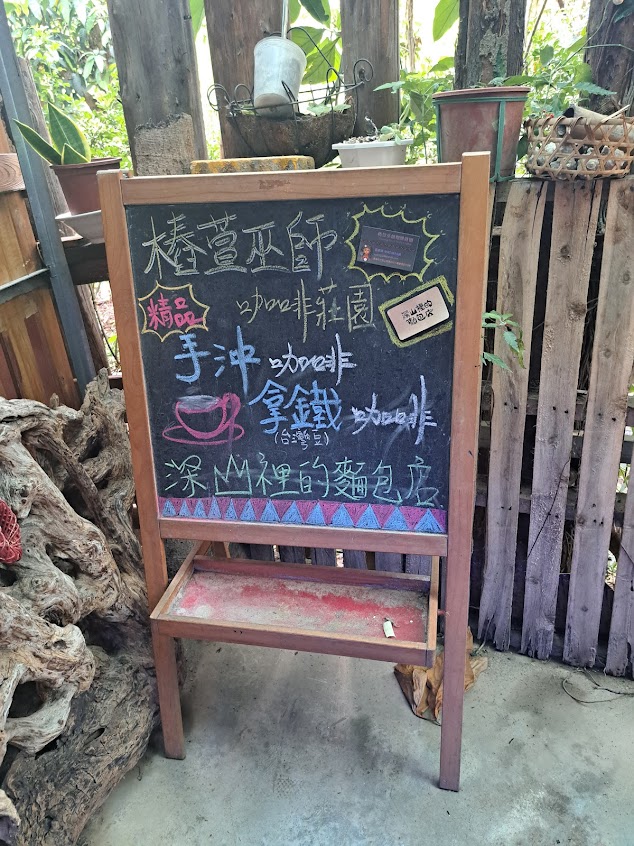 椿萱巫師
咖啡莊園
精品
深山裡的
麵包店
手沖咖啡
拿鐵咖啡
(台灣豆)
深山裡的麵包店